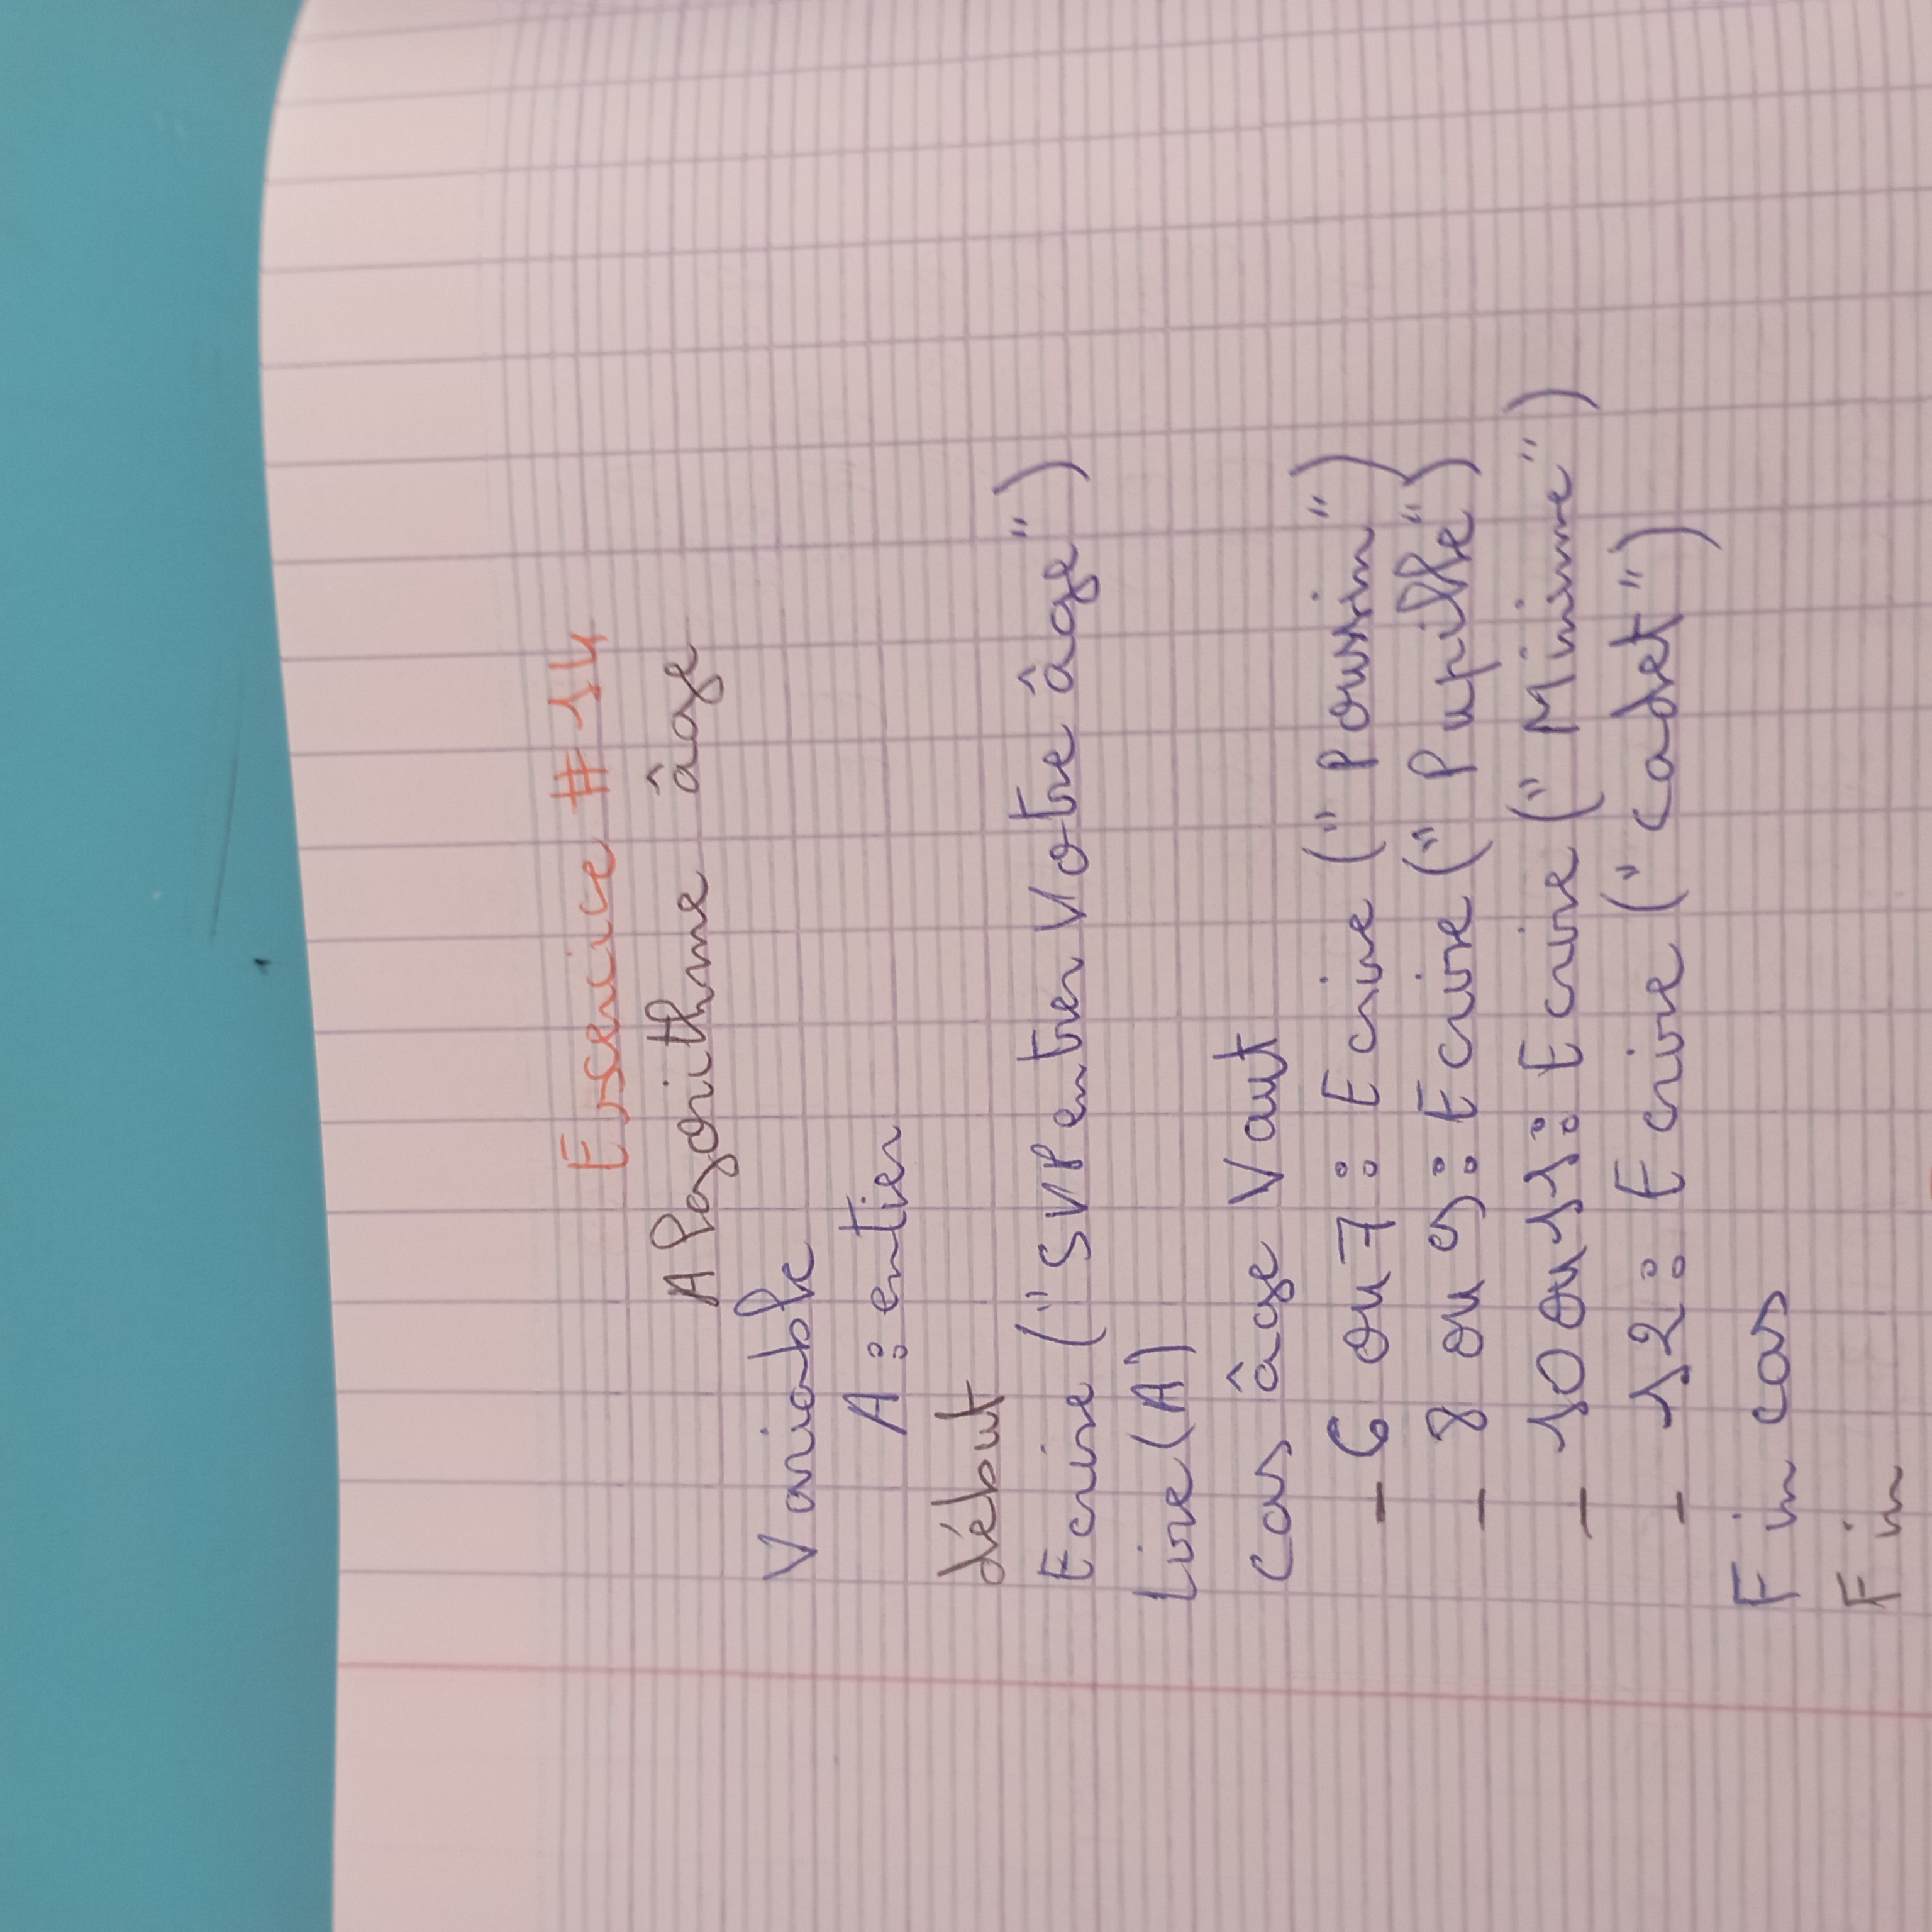 Exercice #14
Algorithme âge
Variable
A : entier
début
Ecrire ("SVP entrer Votre âge")
Lire (A)
cas âge Vaut
- 6 ou 7 : Ecrire ("Poussin")
- 8 ou 9 : Ecrire ("Pupille")
- 10 ou 11 : Ecrire ("Minime")
- 12 : Ecrire ("cadet")
Fin cas
Fin